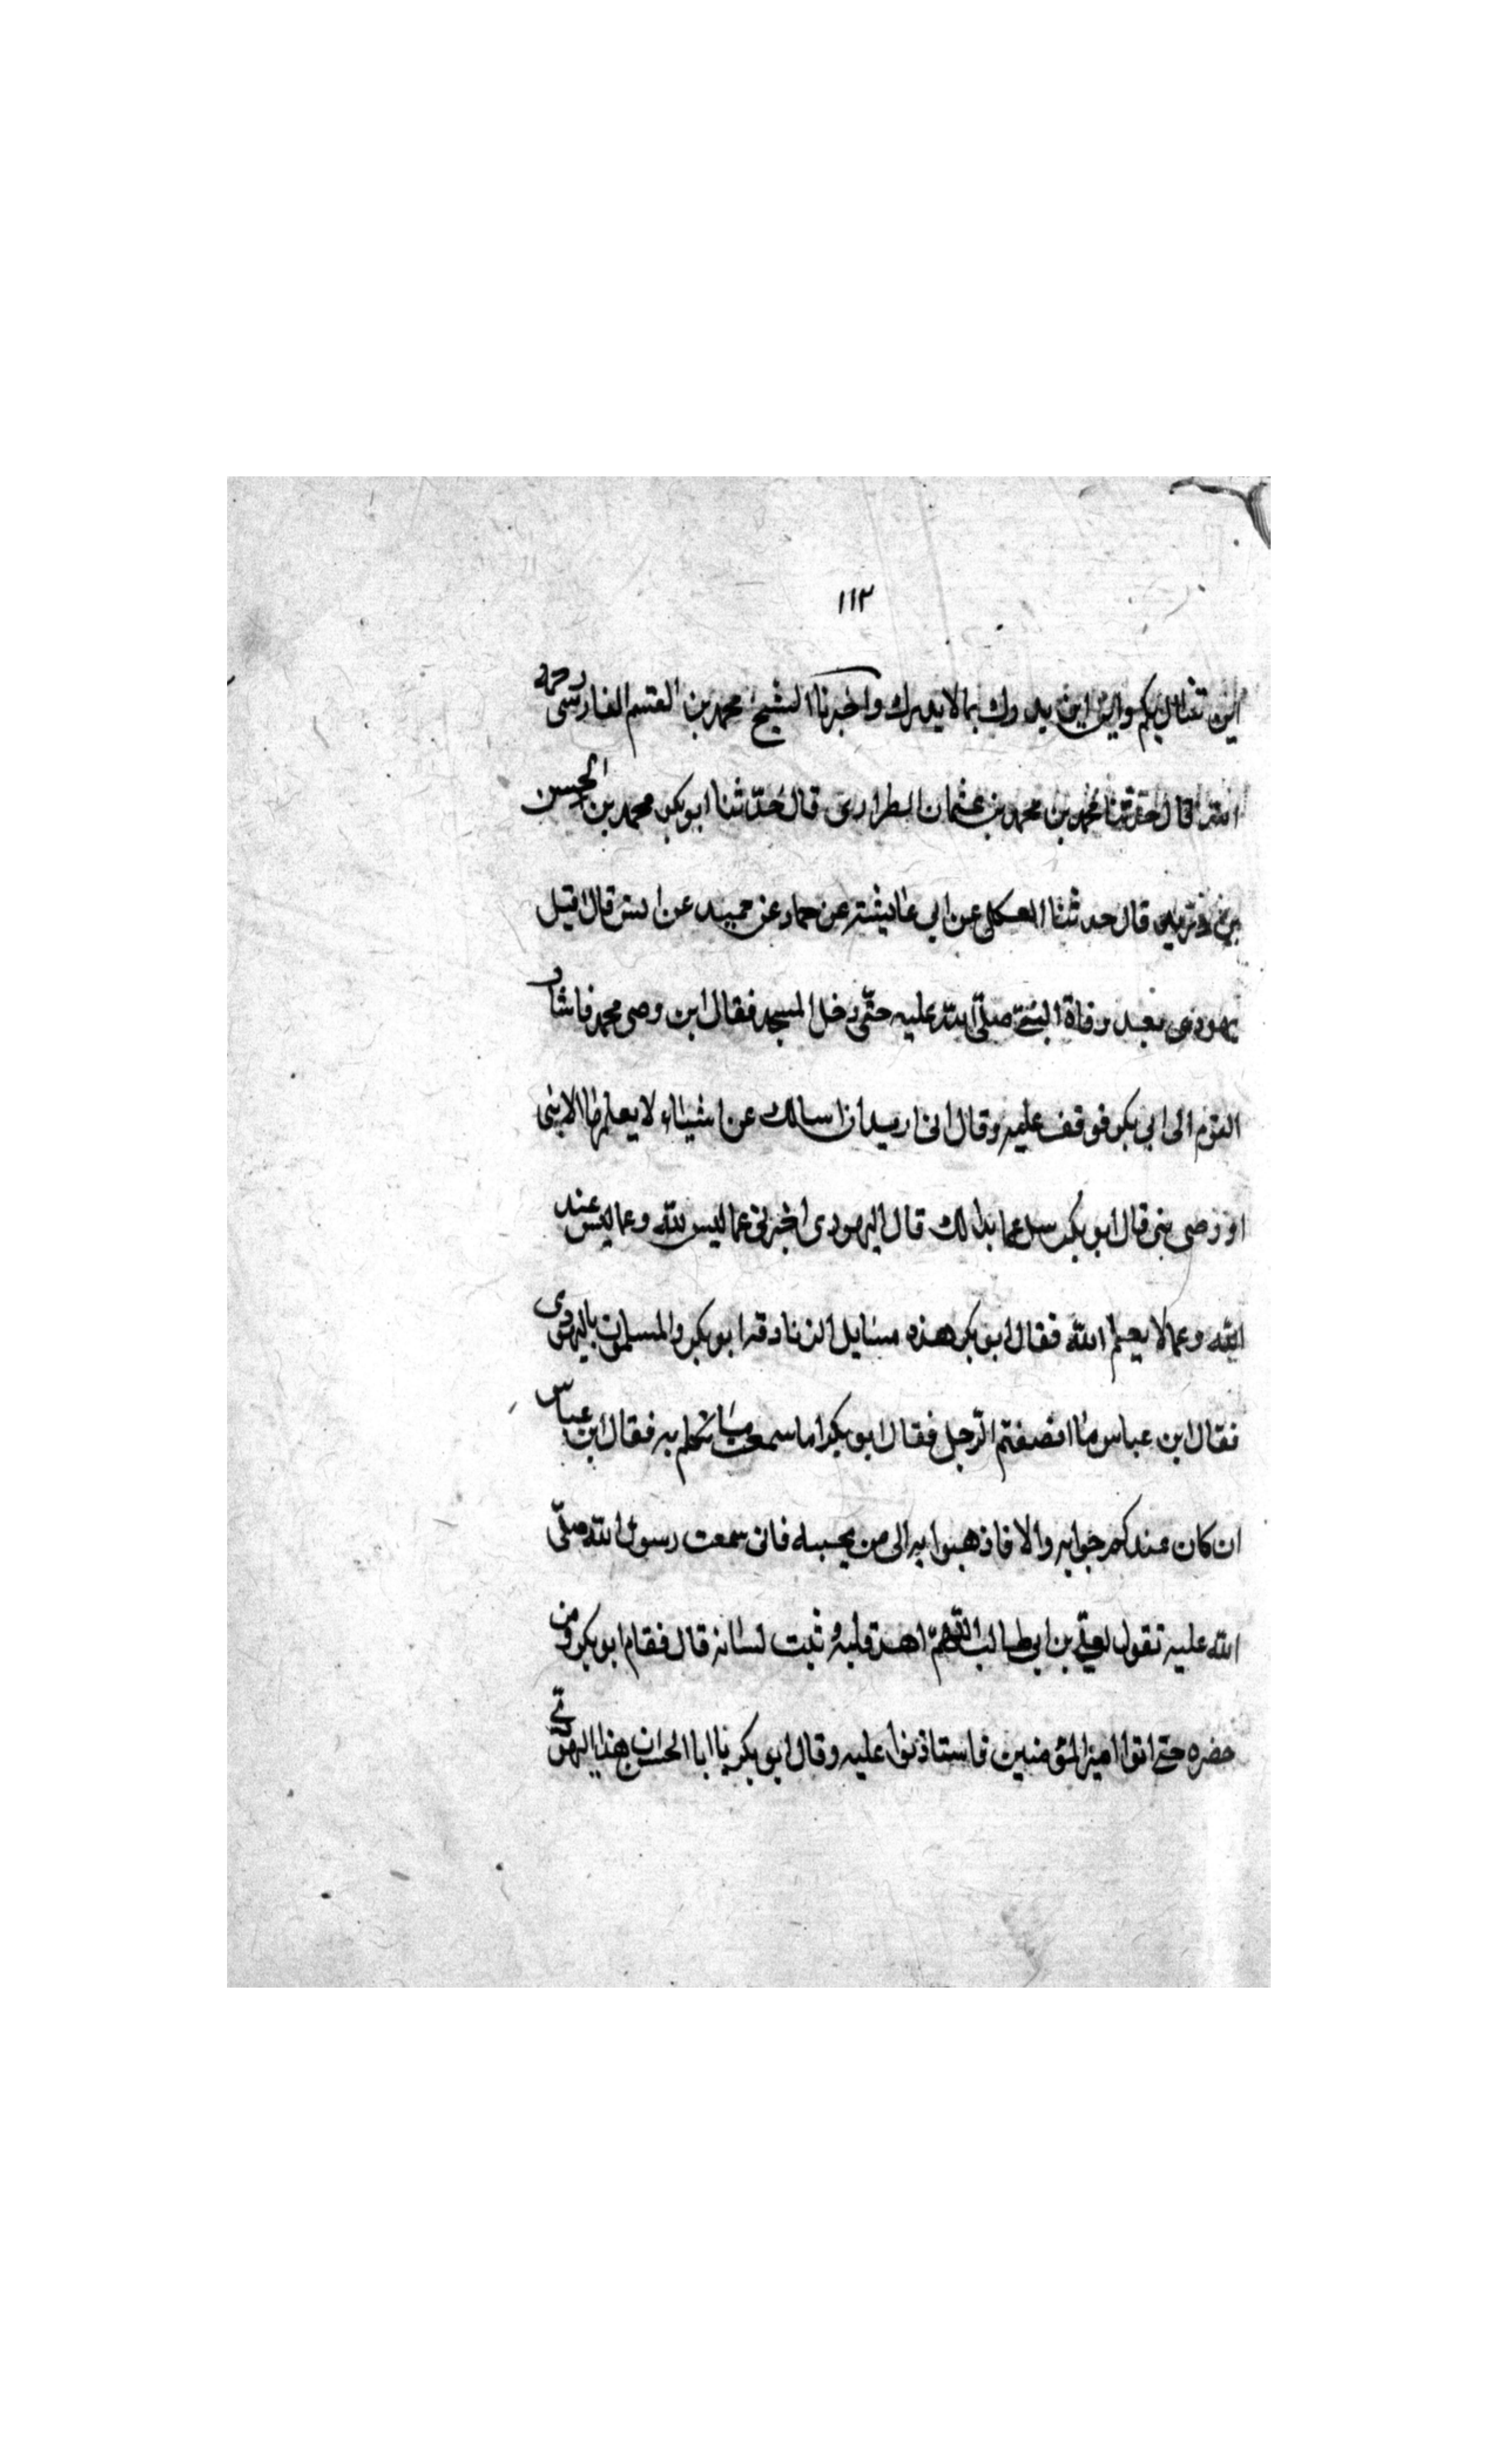 ١١٣
اين تفتالى بكم واين اين يدرك بما لا يدرك واخبرنا الشيخ محمد بن القسم الفارسى رحمه
الله قال حدثنا محمد بن محمد بن عثمان الطرازى قال حدّثنا ابو بكر محمد بن الحسن
بن دريد قال حدثنا العكلى عن ابي عايشة عن حماد عن حميد عن انس قال اقبل
يهودى بعد وفاة النبىّ صلّى الله عليه حتّى دخل المسجد فقال اين وصى محمد فاشار
القوم الى ابي بكر فوقف عليه وقال انى اريد ان اسالك عن اشياء لا يعلمها الا نبى
او وصى نبى قال ابو بكر سل عما بدا لك قال اليهودى اخبرنى عما ليس لله وعما ليس عند
الله وعما لا يعلم الله فقال ابو بكر هذه مسايل الزنادقة ابو بكر والمسلمون باليهودى
فقال ابن عباس ما انصفتم الرّجل فقال ابو بكر اما سمعت ما تكلم به فقال ابن عباس
ان كان عندكم جوابه والا فاذهبوا به الى من يجيبه فانى سمعت رسول الله صلّى
الله عليه تقول لعلىّ بن ابي طالب اللّهمّ اهد قلبه وثبت لسانه قال فقام ابو بكر ومن
حضره حتى اتوا امير المؤمنين فاستاذنوا عليه وقال ابو بكر يا ابا الحسن ان هذا اليهودى